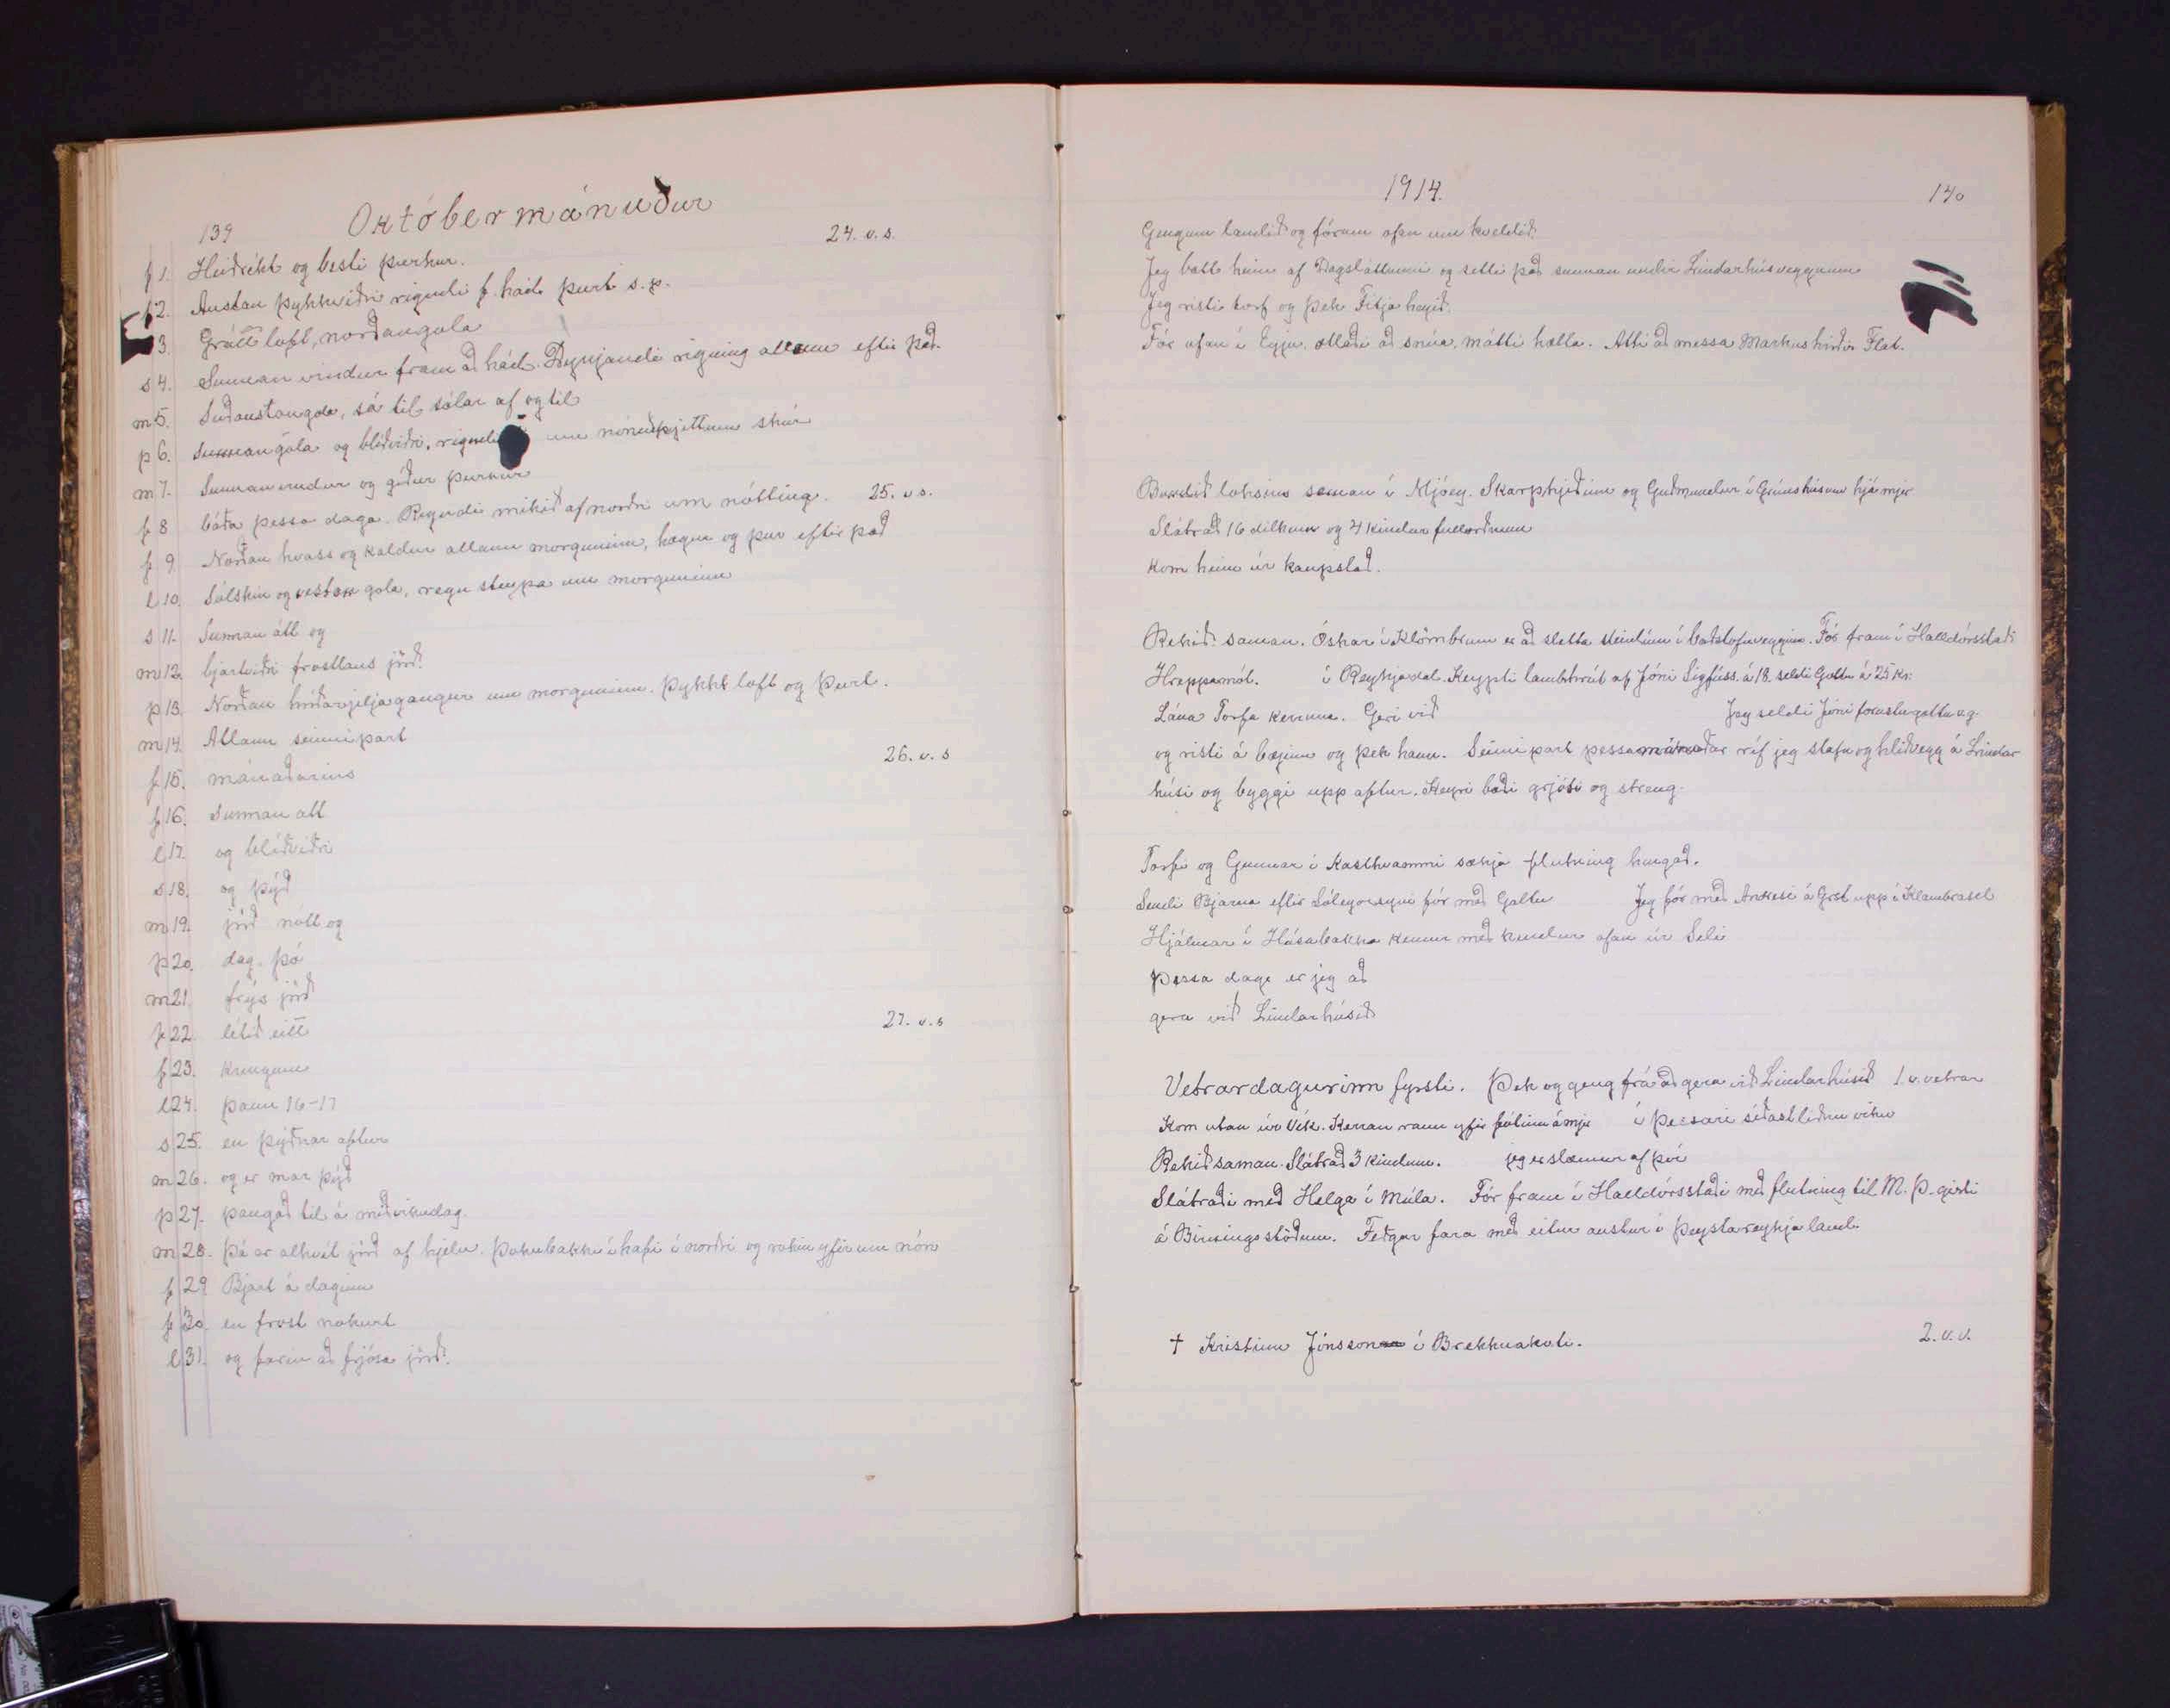 139
Októbermánuður
f 1. Heiðríkt og besti þurkur. 24. v. s.
f 2. Austan þykkviðri rigndi f. hád. þurt s. p.
3. Grátt loft, norðangola
s 4. Sunnan vindur fram að hád. Dynjandi rigning eftir það.
m 5. Suðaustangola, sá til sólar af og til
þ 6. Sunnangola og blíðviðri, rigndi um skúr
m 7. Sunnanvindur og góður þurkur
f 8 báða þessa daga. Rigndi mikið af norðri um nótting. 25. v s.
f 9 Norðan hvass og kaldur allann morguninn, hægur og þur eftir það
l 10. Sólskin og vestan gola, regn steypa um morguninn
s 11. Sunnan átt og
m 12. bjartviðri frostlaus jörð.
þ 13. Norðan hríðarjeljagangur um morguninn. Þykkt loft og þurt.
m 14. Allann seinnipart
f 15. mánaðarins 26. v. s
f 16. Sunnan átt
l 17. og blíðviðri
s 18. og þýð
m 19. jörð nótt og
þ 20. dag. þó
m 21. frýs jörð
f 22. lítið eitt 27. v. s
f 23. kringum
l 24. þann 16-17
s 25. en þýðnar aftur
m 26. og er mar þýð
þ 27. þangað til á miðvikudag.
m 28. þá er alhvít jörð af hjelu. Þokubakki í hafi í norðri og rokin yfir um nón
f 29 Bjart á daginn
f 30. en frost nokurt
l 31. og farin að frjósa jörð.
1914.
140
Gengum landið og fórum ofan um kveldið.
Jeg batt heim af Dagsláttunni og setti það sunnan undir Lindarhúsveggnum
Jeg risti torf og þek Fitja heyið.
Fór ofan í Eyju, ætlaði að snúa, mátti hætta. Átti að messa Markus hirðir Flat.
Bundið loksins saman í Mjóey. Skarphjeðinn og Guðmundur í Grímshúsum hjá mjer
Slátrað 16 dilkum og 4 kindur fullorðnum
Kom heim úr kaupstað.
Rekið saman. Óskar í Klömbrum er að sletta steinlím í baðstofuvegginn. Fór fram í Halldórsstaði
Hreppamót. í Reykjadal. Keypti lambhrút af Jóni Sigfúss. á 18. seldi Galta á 25 kr.
Lána Torfa kerruna. Geri við Jeg seldi Jóni forustugaltung
og risti á bæinn og þek hann. Seinni part þessa mánaðar ríf jeg stafn og hliðvegg á Lindar
húsi og byggi upp aftur. Keyri bæði grjóti og streng.
Torfi og Gunnar í Kasthvammi sækja flutning hingað.
Sendi Bjarna eftir fór með Galta Jeg fór með Andresi á Grst upp í Klambrasel
Hjálmar í Húsabakka kemur með kindur ofan úr Seli
Þessa daga er jeg að
gera við Lindarhúsið
Vetrardagurinn fyrsti. Þek og geng frá að gera við Lindarhúsið 1. v. vetrar
Kom utan úr Vík. Kerran rann yfir fótinn á mjer í þessari síðastliðnu viku
Rekið saman. Slátrað 3 kindum. jeg er slæmur af því
Slátraði með Helga í Múla. Fór fram í Halldórsstaði með flutning til M. Þ. gisti
á Birningsstöðum. Feðgar fara með eitur austur í Þeystareykja land.
† Kristinn Jónsson í Brekknakoti. 2. v. v.